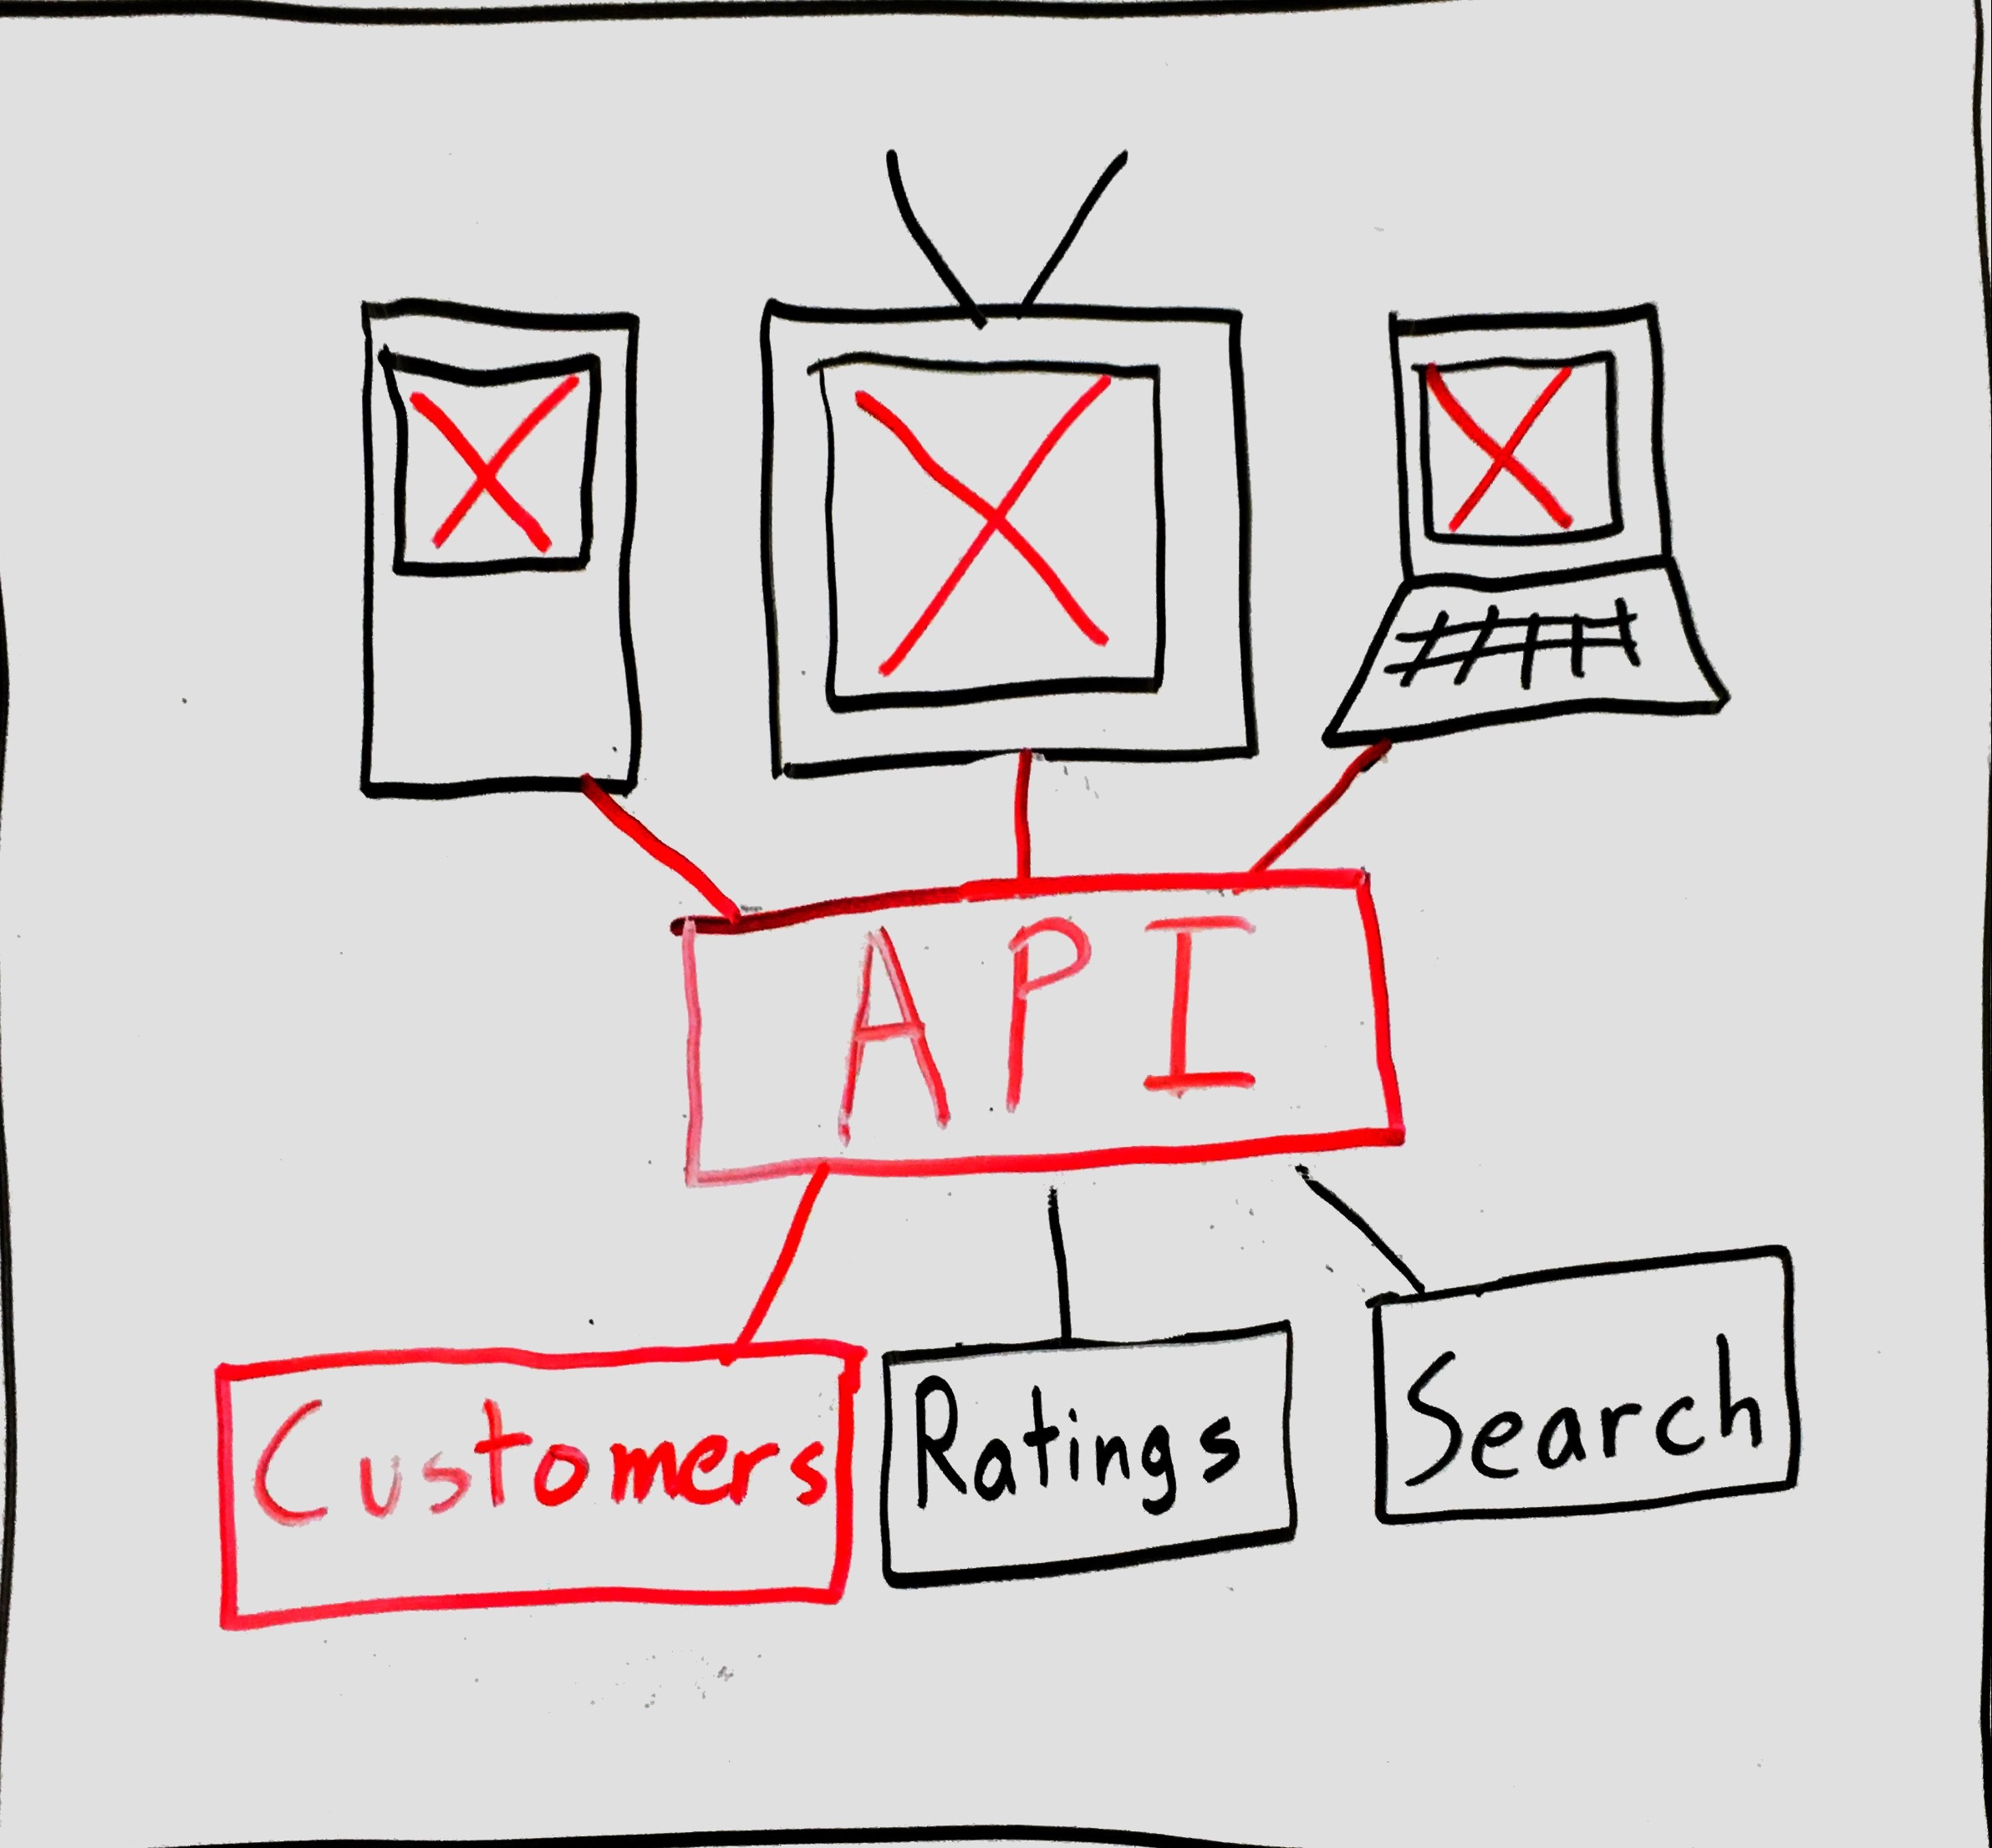 API
Customers
Ratings
Search